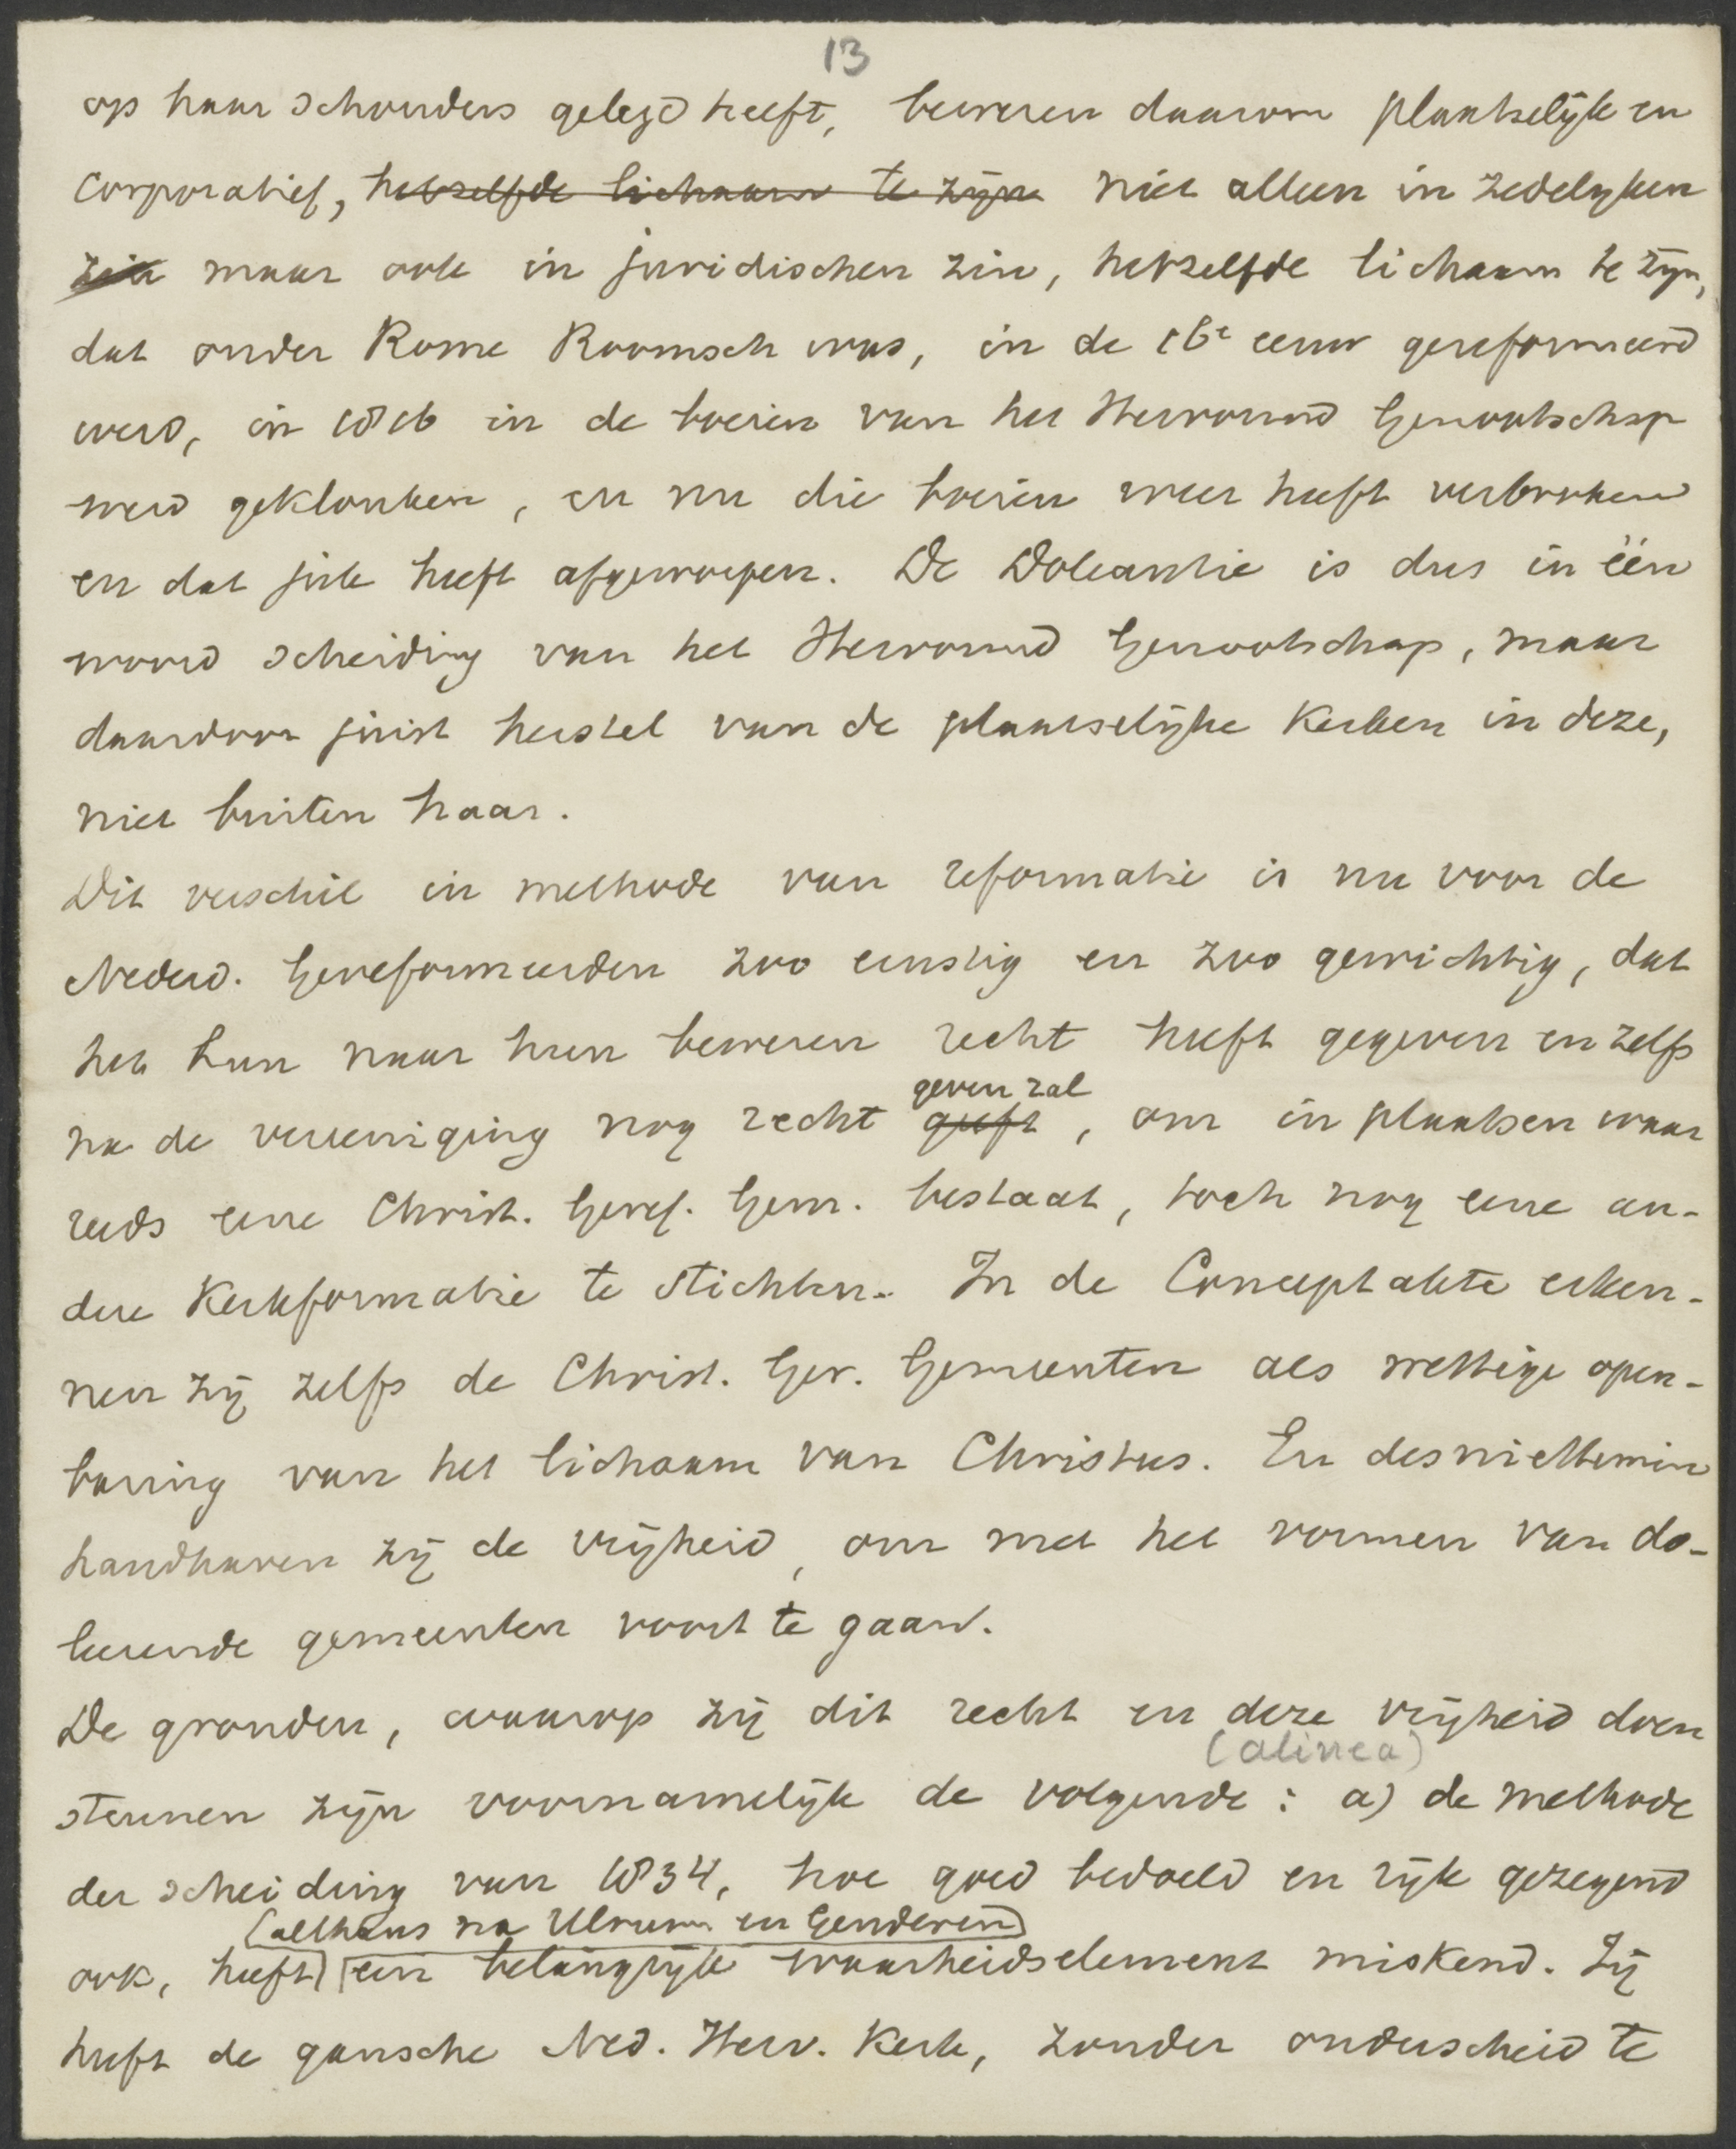 13
op haar schouders gelegd heeft, beweren daarom plaatselijk en
corporatief, hetzelfde lichaam te zijn niet alleen in zedelijken
zin maar ook in juridischen zin, hetzelfde lichaam te zijn,
dat onder Rome Roomsch was, in de 16e eeuw gereformeerd
werd, in 1816 in de boeien van het Hervormd Genootschap
werd geklonken, en nu die boeien weer heeft verbroken
en dat juk heeft afgeworpen. De Doleantie is dus in één
woord scheiding van het Hervormd Genootschap, maar
daardoor juist herstel van de plaatselijke Kerken in deze,
niet buiten haar.
Dit verschil in methode van reformatie is nu voor de
Nederd. Gereformeerden zoo ernstig en zoo gewichtig, dat
het hun naar hun beweren recht heeft gegeven en zelfs
geven zal
na de vereeniging nog recht geeft, om in plaatsen waar
reeds eene Christ. Geref. Gem. bestaat, toch nog eene an-
dere Kerkformatie te stichten. In de Conceptakte erken-
nen zij zelfs de Christ. Ger. Gemeenten als wettige open-
baring van het lichaam van Christus. En desniettemin
handhaven zij de vrijheid, om met het vormen van do-
leerende gemeenten voort te gaan.
De gronden, waarop zij dit recht en deze vrijheid doen
(alinea)
steunen zijn voornamelijk de volgende: a) de methode
der scheiding van 1834, hoe goed bedoeld en rijk gezegend
(althans na Ulrum en Genderen)
ook, heeft een belangrijk waarheidselement miskend. Zij
heeft de gansche Ned. Herv. Kerk, zonder onderscheid te